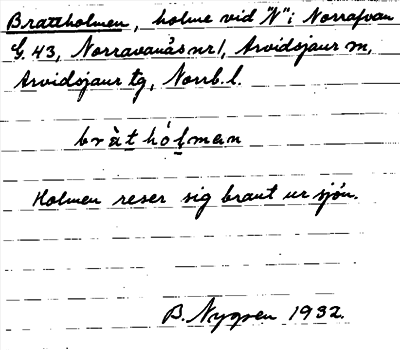 Brattholmen, holme vid "N" i Norrafvan
G. 43, Norravanäs nr 1, Arvidsjaur m,
Arvidsjaur tg, Norrb. l.
bràt hólman
Holmen reser sig brant ur sjön.
B. Nygren 1932.